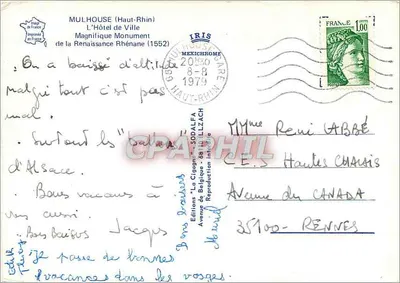 MULHOUSE (Haut-Rhin)
L'Hôtel de Ville
Magnifique Monument
de la Renaissance Rhénane (1552)
IRIS
MEXICHROME
68 MULHOUSE GARE
20H30
8-8
1979
HAUT-RHIN
FRANCE
1,00
On a baissé d'altitude
malgré tout c'est pas
mal.
Surtout les "balades"
d'Alsace.
Bonne vacances à
vous aussi.
Bons Baisers Jacques
Je passe de bonnes
vacances dans les vosges.
Bons baisers
Muriel
Edith
Editions "La Cigogne" - SODALFA
Avenue de Belgique - 68 ILLZACH
Reproduction interdite
CPAPHIL
Mme René LABBÉ
C.E.S Hautes CHALAIS
Avenue du CANADA
35100 - RENNES